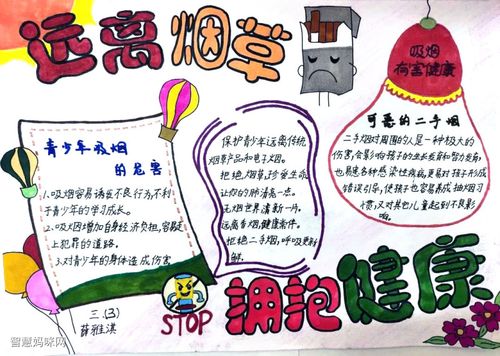 远离烟草
吸烟
有害健康
青少年吸烟
的危害
1.吸烟容易诱发不良行为,不利
于青少年的学习成长。
2.吸烟增加自身经济负担,容易走
上犯罪的道路。
3.对青少年的身体造成伤害
三.(3)
薛雅淇
保护青少年远离传统
烟草产品和电子烟。
拒绝烟草,珍爱生命
让你的肺清亮一点。
无烟世界清新一片。
远离香烟,健康常伴。
拒绝二手烟,呼吸更新
鲜
可恶的二手烟
二手烟对周围的人是一种极大的
伤害,会影响孩子的生长发育和智力发育,
也易患多种感染性疾病,更易对孩子形成
错误引导,使孩子也容易养成抽烟习
惯,又对其他儿童起到不良影
响。
STOP
拥抱健康
智慧妈咪网